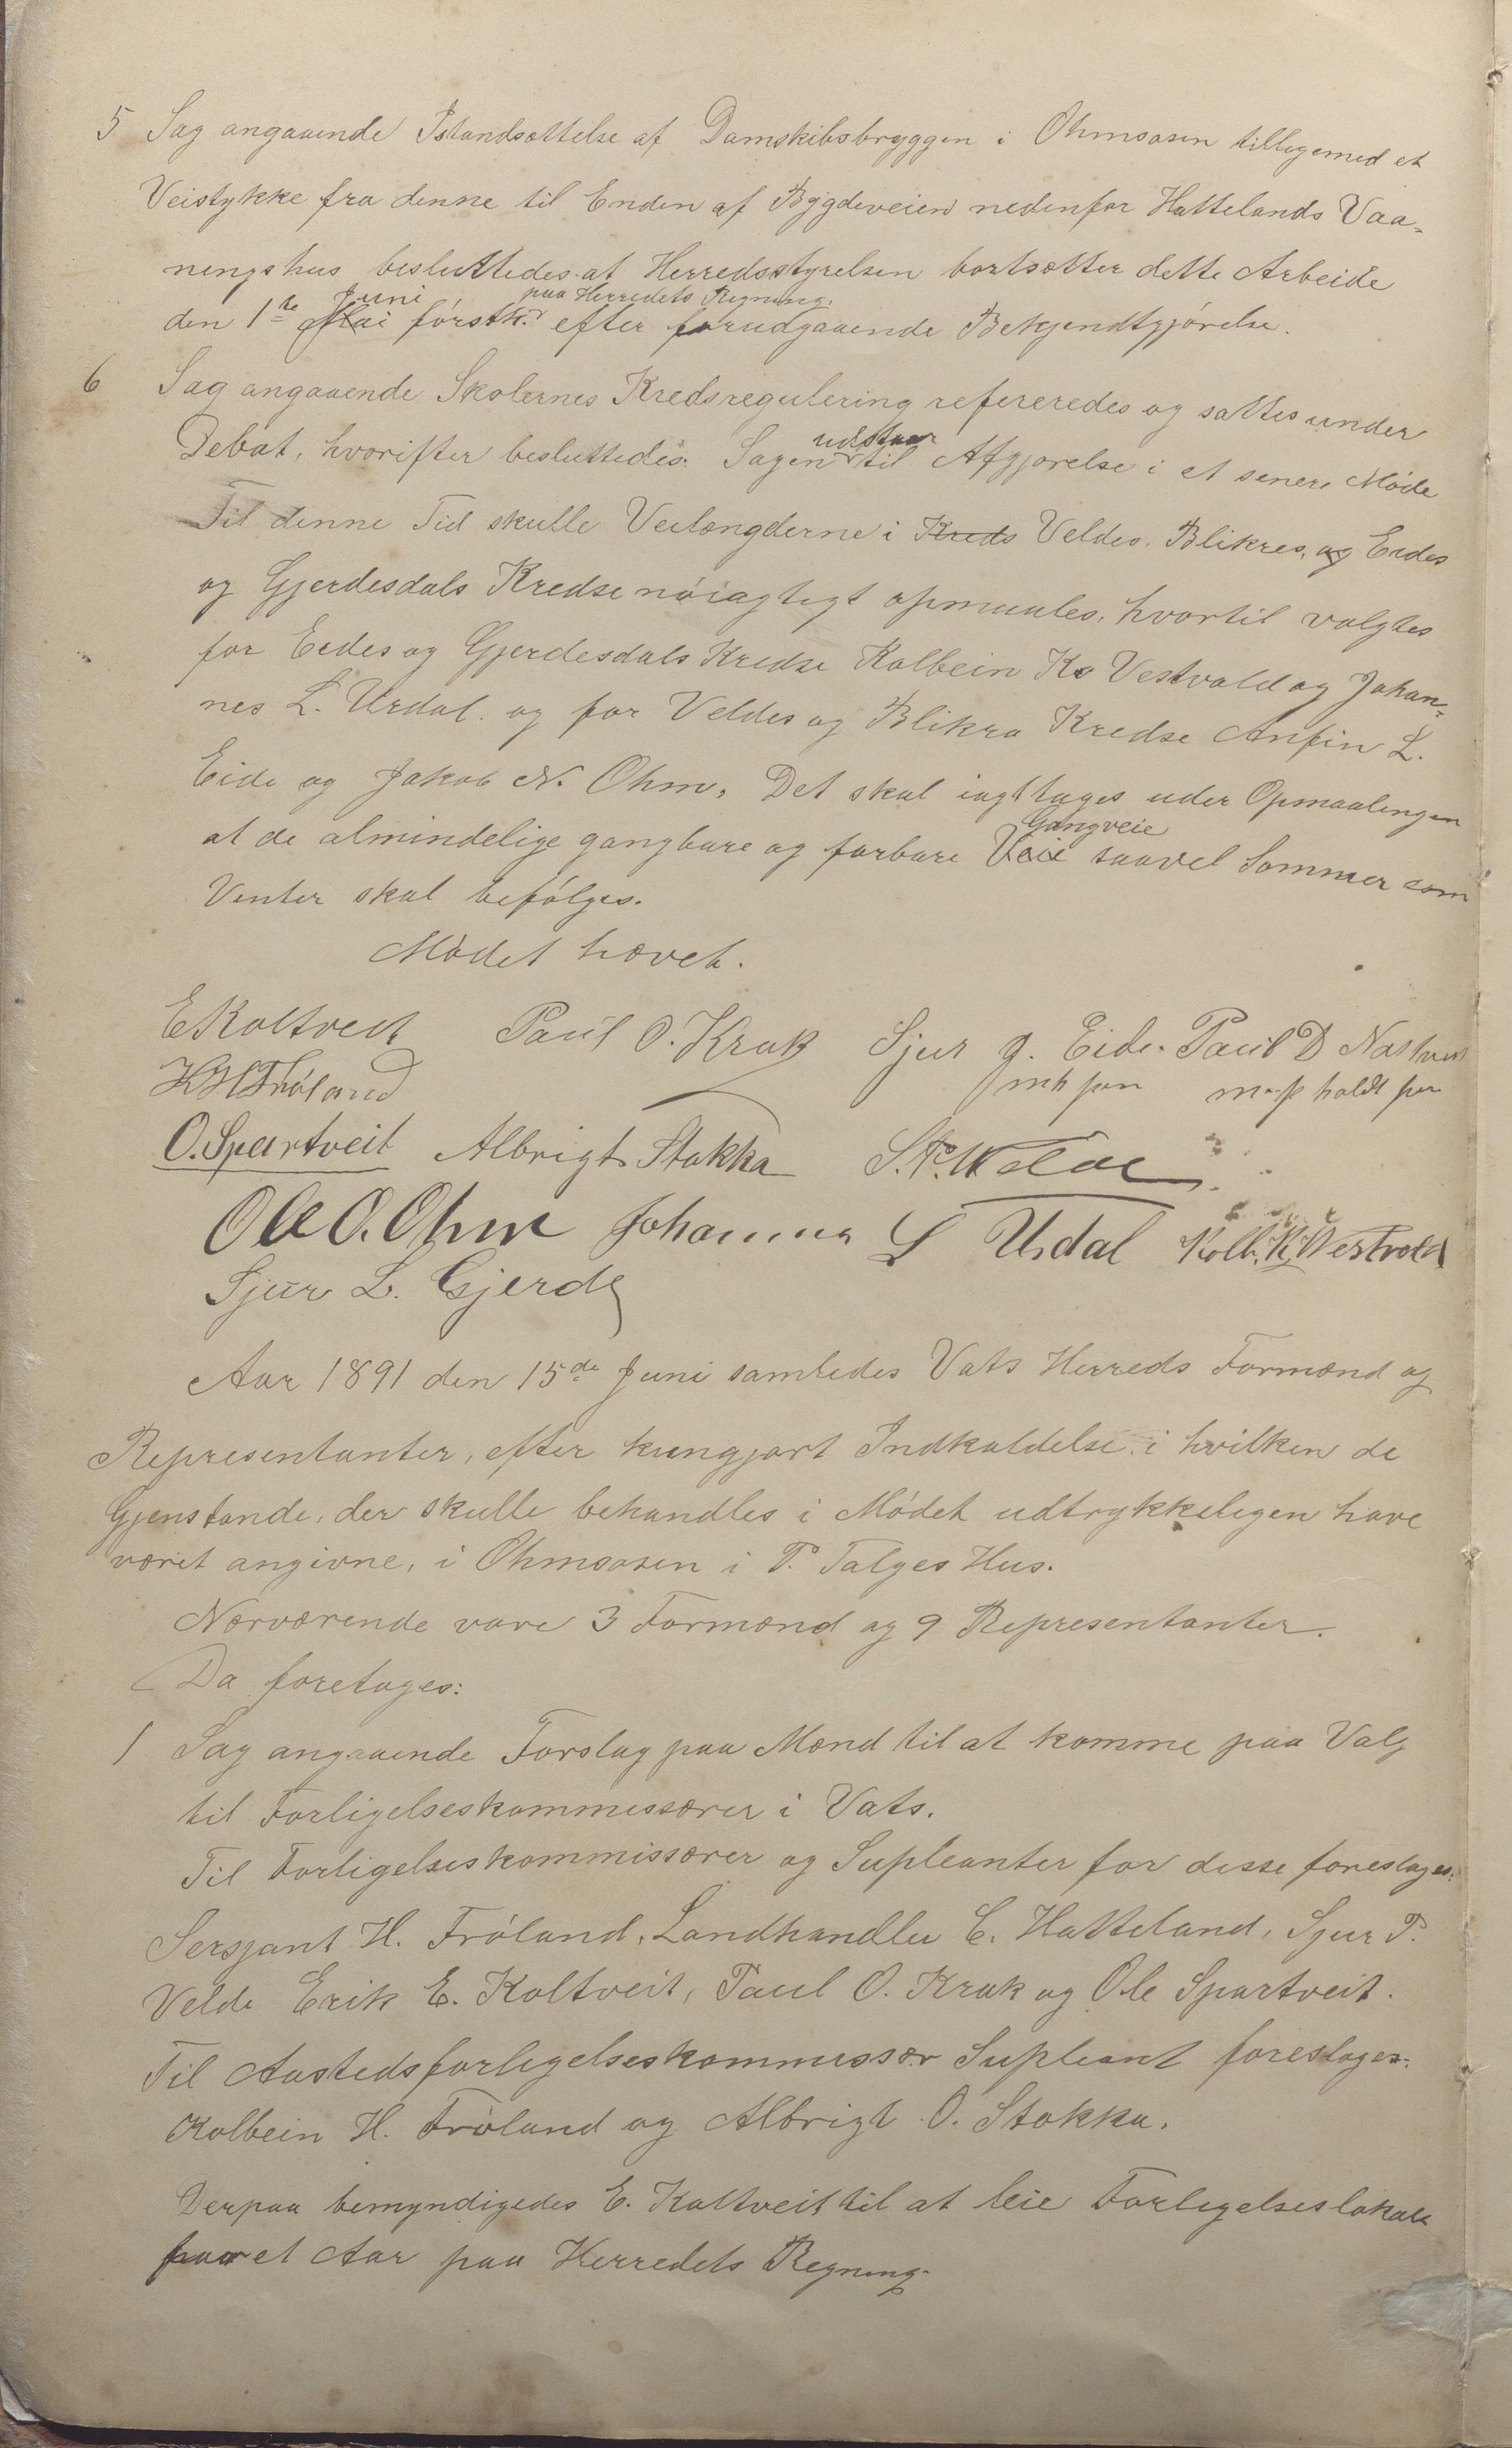 5 Sag angaaende Istandsættelse af Damskibsbryggen i Ohmsosen tilligemed et
Veistykke fra denne til Enden af Bygdeveien nedenfor Hattelands Vaa-
ningshus besluttedes at Herredsstyrelsen bortsætter dette Arbeide
Juni paa Herredets Regning.
den 1ste Mai førstk. efter forudgaaende Bekjendtgjørelse.
6 Sag angaaende Skolernes Kredsregulering refereredes og sattes under
udstaar
Debat, hvorefter besluttedes: Sagen til Afgjørelse i et senere Møde
Til denne Tid skulle Veilængderne i Kreds Veldes, Blikres, og Eides
og Gjerdesdals Kredse nøiagtigt opmaales, hvortil valgtes
for Eides og Gjerdesdals Kredse Kolbein K. Vestvold og Johan-
nes L. Urdal. og for Veldes og Blikra Kredse Anfin L.
Eide og Jakob N. Ohm. Det skal iagttages uder Opmaalingen
Gangveie
at de almindelige gangbare og farbare Veie saavel Sommer som
Venter skal befølges.
Mødet hævet.
E Koltveit Paul O. Krak Sjur J. Eide. Paul D Nastveit
H H Frøland mh pen m. p. holdt pen
O. Spartveit Albrigt Stakka S. P. Velde
Ole O. Ohm Johannes L Urdal Kolb. K. Vestvold
Sjur L. Gjerde
Aar 1891 den 15de Juni samledes Vats Herreds Formænd og
Representanter, efter kungjort Indkaldelse i hvilken de
Gjenstande, der skulle behandles i Mødet udtrykkeligen have
været angivne, i Ohmsosen i P. Talges Hus.
Nærværende vare 3 Formænd og 9 Representanter.
Da foretages:
1 Sag angaaende Forslag paa Mænd til at komme paa Valg
til Forligelseskommissærer i Vats.
Til Forligelseskommissærer og Supleanter for disse foreslages:
Sersjant H. Frøland, Landhandler C. Hatteland, Sjur P.
Velde Erik E. Koltveit, Paul O. Krak og Ole Spartveit.
Til Aastedsforligelseskommissær Supleant foreslages:
Kolbein H. Frøland og Albrigt O. Stokka.
Derpaa bemyndigedes E. Koltveit til at leie Forligelseslokale
for et Aar paa Herredets Regning.